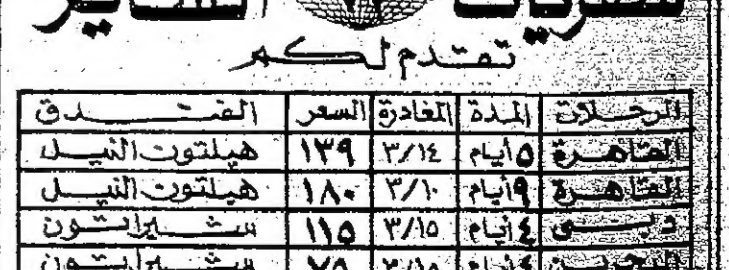 تقدم لكم
الرحلات المدة المغادرة السعر الفندق
القاهرة ٥ أيام ٣/١٤ ١٣٩ هيلتون النيل
القاهرة ٩ أيام ٣/١٠ ١٨٠ هيلتون النيل
دبي ٤ أيام ٣/١٥ ١١٥ شيراتون
البحرين ٤ أيام ٣/١٥ ٧٥ شيراتون